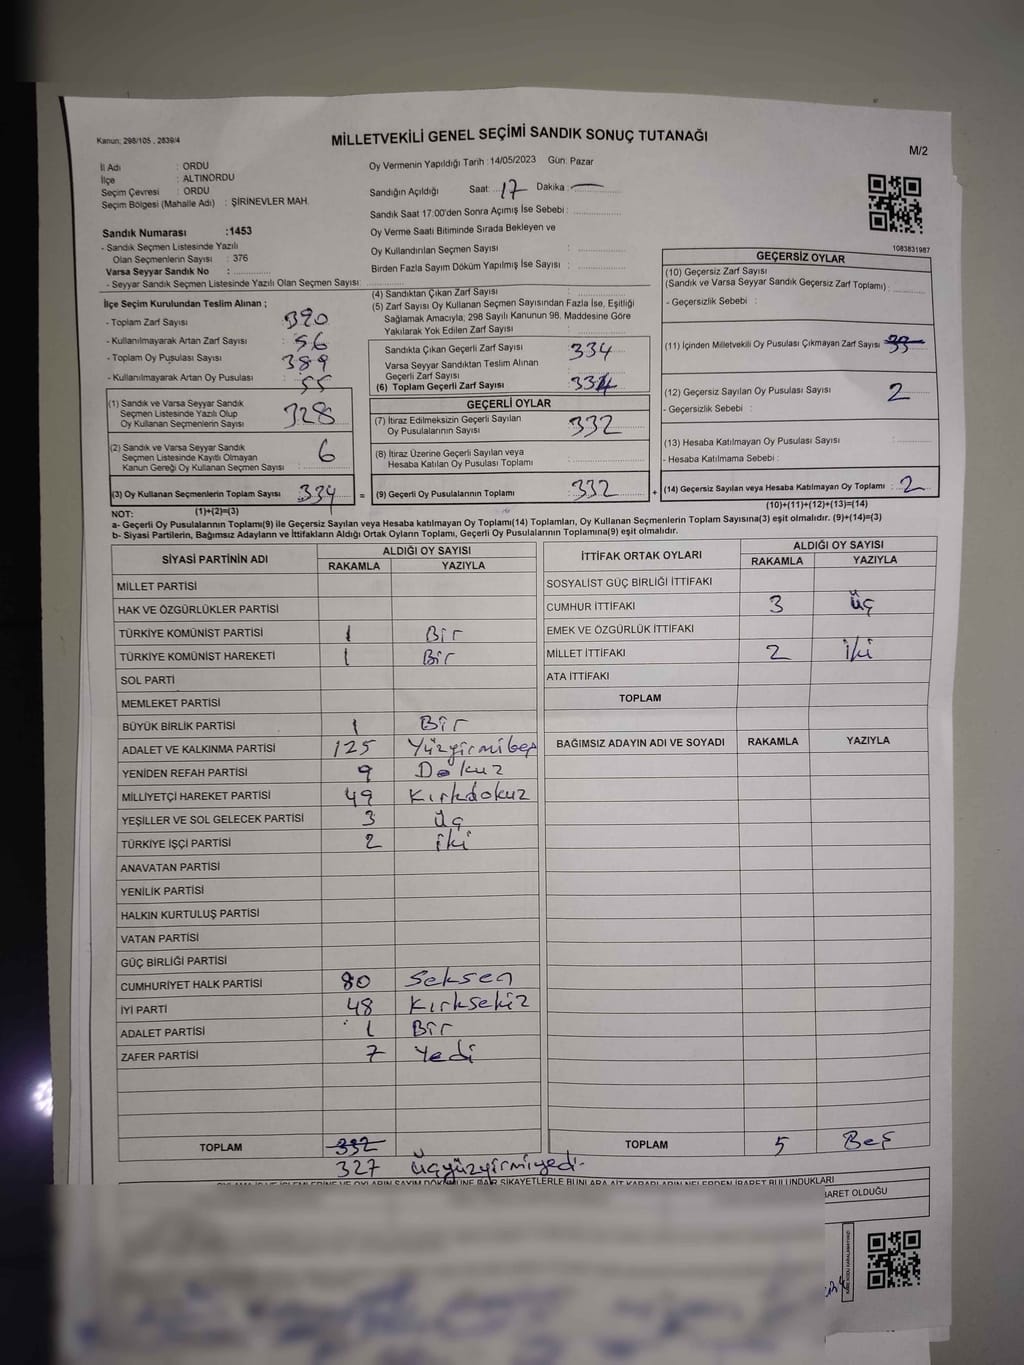 Kanun: 298/105 , 2839/4
MİLLETVEKİLİ GENEL SEÇİMİ SANDIK SONUÇ TUTANAĞI
M/2
İl Adı : ORDU
İlçe : ALTINORDU
Seçim Çevresi : ORDU
Seçim Bölgesi (Mahalle Adı) : ŞİRİNEVLER MAH.
Oy Vermenin Yapıldığı Tarih : 14/05/2023 Gün: Pazar
Sandığın Açıldığı Saat 17 Dakika —
Sandık Saat 17:00'den Sonra Açımış İse Sebebi :
Oy Verme Saati Bitiminde Sırada Bekleyen ve
Oy Kullandırılan Seçmen Sayısı :
Birden Fazla Sayım Döküm Yapılmış İse Sayısı :
Sandık Numarası :1453
- Sandık Seçmen Listesinde Yazılı
Olan Seçmenlerin Sayısı : 376
Varsa Seyyar Sandık No :
- Seyyar Sandık Seçmen Listesinde Yazılı Olan Seçmen Sayısı:
1083831987
İlçe Seçim Kurulundan Teslim Alınan ;
- Toplam Zarf Sayısı : 390
- Kullanılmayarak Artan Zarf Sayısı : 56
- Toplam Oy Pusulası Sayısı : 389
- Kullanılmayarak Artan Oy Pusulası : 55
(1) Sandık ve Varsa Seyyar Sandık
Seçmen Listesinde Yazılı Olup
Oy Kullanan Seçmenlerin Sayısı 328
(2) Sandık ve Varsa Seyyar Sandık
Seçmen Listesinde Kayıtlı Olmayan
Kanun Gereği Oy Kullanan Seçmen Sayısı : 6
(3) Oy Kullanan Seçmenlerin Toplam Sayısı 334
(1)+(2)=(3)
(4) Sandıktan Çıkan Zarf Sayısı :
(5) Zarf Sayısı Oy Kullanan Seçmen Sayısından Fazla İse, Eşitliği
Sağlamak Amacıyla; 298 Sayılı Kanunun 98. Maddesine Göre
Yakılarak Yok Edilen Zarf Sayısı :
Sandıkta Çıkan Geçerli Zarf Sayısı 334
Varsa Seyyar Sandıktan Teslim Alınan
Geçerli Zarf Sayısı :
(6) Toplam Geçerli Zarf Sayısı : 334
GEÇERLİ OYLAR
(7) İtiraz Edilmeksizin Geçerli Sayılan
Oy Pusulalarının Sayısı : 332
(8) İtiraz Üzerine Geçerli Sayılan veya
Hesaba Katılan Oy Pusulası Toplamı :
= (9) Geçerli Oy Pusulalarının Toplamı : 332 +
GEÇERSİZ OYLAR
(10) Geçersiz Zarf Sayısı
(Sandık ve Varsa Seyyar Sandık Geçersiz Zarf Toplamı) :
- Geçersizlik Sebebi :
(11) İçinden Milletvekili Oy Pusulası Çıkmayan Zarf Sayısı : 33
(12) Geçersiz Sayılan Oy Pusulası Sayısı : 2
- Geçersizlik Sebebi :
(13) Hesaba Katılmayan Oy Pusulası Sayısı :
- Hesaba Katılmama Sebebi :
(14) Geçersiz Sayılan veya Hesaba Katılmayan Oy Toplamı : 2
(10)+(11)+(12)+(13)=(14)
NOT:
a- Geçerli Oy Pusulalarının Toplamı(9) ile Geçersiz Sayılan veya Hesaba katılmayan Oy Toplamı(14) Toplamları, Oy Kullanan Seçmenlerin Toplam Sayısına(3) eşit olmalıdır. (9)+(14)=(3)
b- Siyasi Partilerin, Bağımsız Adayların ve İttifakların Aldığı Ortak Oyların Toplamı, Geçerli Oy Pusulalarının Toplamına(9) eşit olmalıdır.
SİYASİ PARTİNİN ADI ALDIĞI OY SAYISI
RAKAMLA YAZIYLA
MİLLET PARTİSİ
HAK VE ÖZGÜRLÜKLER PARTİSİ
TÜRKİYE KOMÜNİST PARTİSİ 1 Bir
TÜRKİYE KOMÜNİST HAREKETİ 1 Bir
SOL PARTİ
MEMLEKET PARTİSİ
BÜYÜK BİRLİK PARTİSİ 1 Bir
ADALET VE KALKINMA PARTİSİ 125 Yüzyirmibeş
YENİDEN REFAH PARTİSİ 9 Dokuz
MİLLİYETÇİ HAREKET PARTİSİ 49 Kırkdokuz
YEŞİLLER VE SOL GELECEK PARTİSİ 3 üç
TÜRKİYE İŞÇİ PARTİSİ 2 iki
ANAVATAN PARTİSİ
YENİLİK PARTİSİ
HALKIN KURTULUŞ PARTİSİ
VATAN PARTİSİ
GÜÇ BİRLİĞİ PARTİSİ
CUMHURİYET HALK PARTİSİ 80 Seksen
İYİ PARTİ 48 Kırksekiz
ADALET PARTİSİ 1 Bir
ZAFER PARTİSİ 7 Yedi
TOPLAM 332
327 Üçyüzyirmiyedi
İTTİFAK ORTAK OYLARI ALDIĞI OY SAYISI
RAKAMLA YAZIYLA
SOSYALİST GÜÇ BİRLİĞİ İTTİFAKI
CUMHUR İTTİFAKI 3 üç
EMEK VE ÖZGÜRLÜK İTTİFAKI
MİLLET İTTİFAKI 2 iki
ATA İTTİFAKI
TOPLAM
BAĞIMSIZ ADAYIN ADI VE SOYADI RAKAMLA YAZIYLA
TOPLAM 5 Beş
BARET OLDUĞU